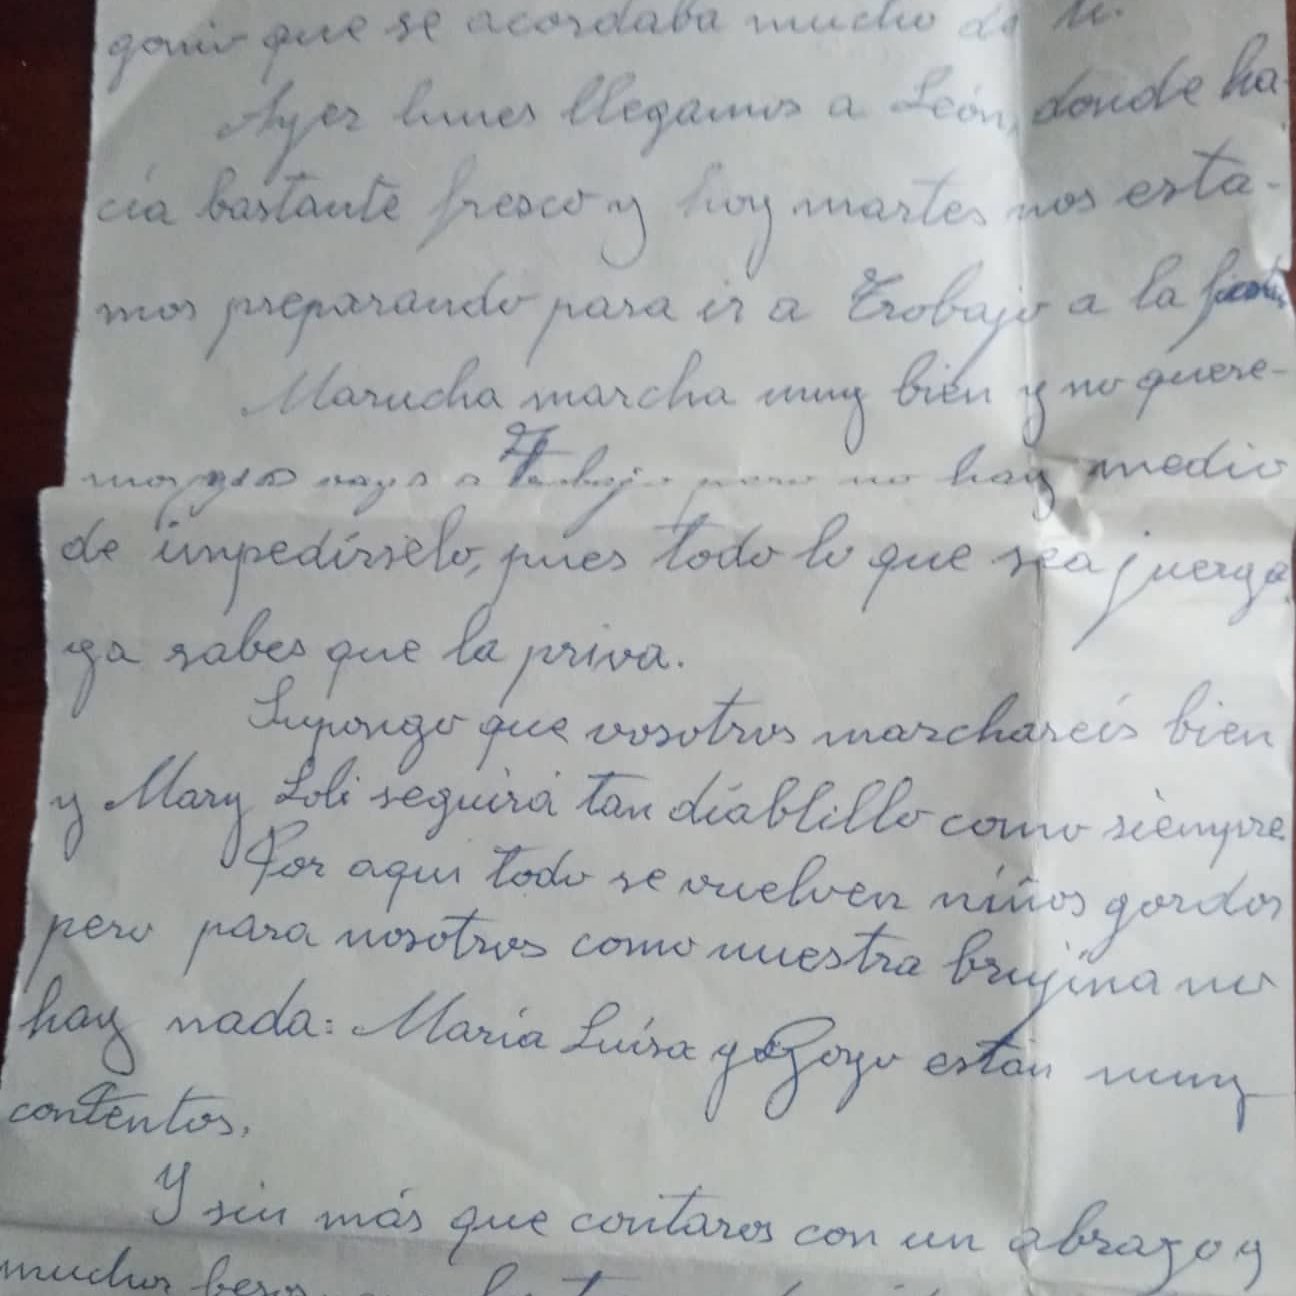 que se acordaba mucho de ti.
Ayer lunes llegamos a León, donde ha-
cía bastante fresco y hoy martes nos esta-
mos preparando para ir a Trobajo a la fiesta
Marucha marcha muy bien y no quere-
mos vaya a Trobajo pero no hay medio
de impedírselo, pues todo lo que sea juerga
ya sabes que la priva.
Supongo que vosotros marcharéis bien
y Mary Loli seguirá tan diablillo como siempre
Por aqui todo se vuelven niños gordos
pero para nosotros como nuestra brujina no
hay nada: María Luisa y Goyo están muy
contentos.
Y sin más que contaros con un abrazo y
muchos besos